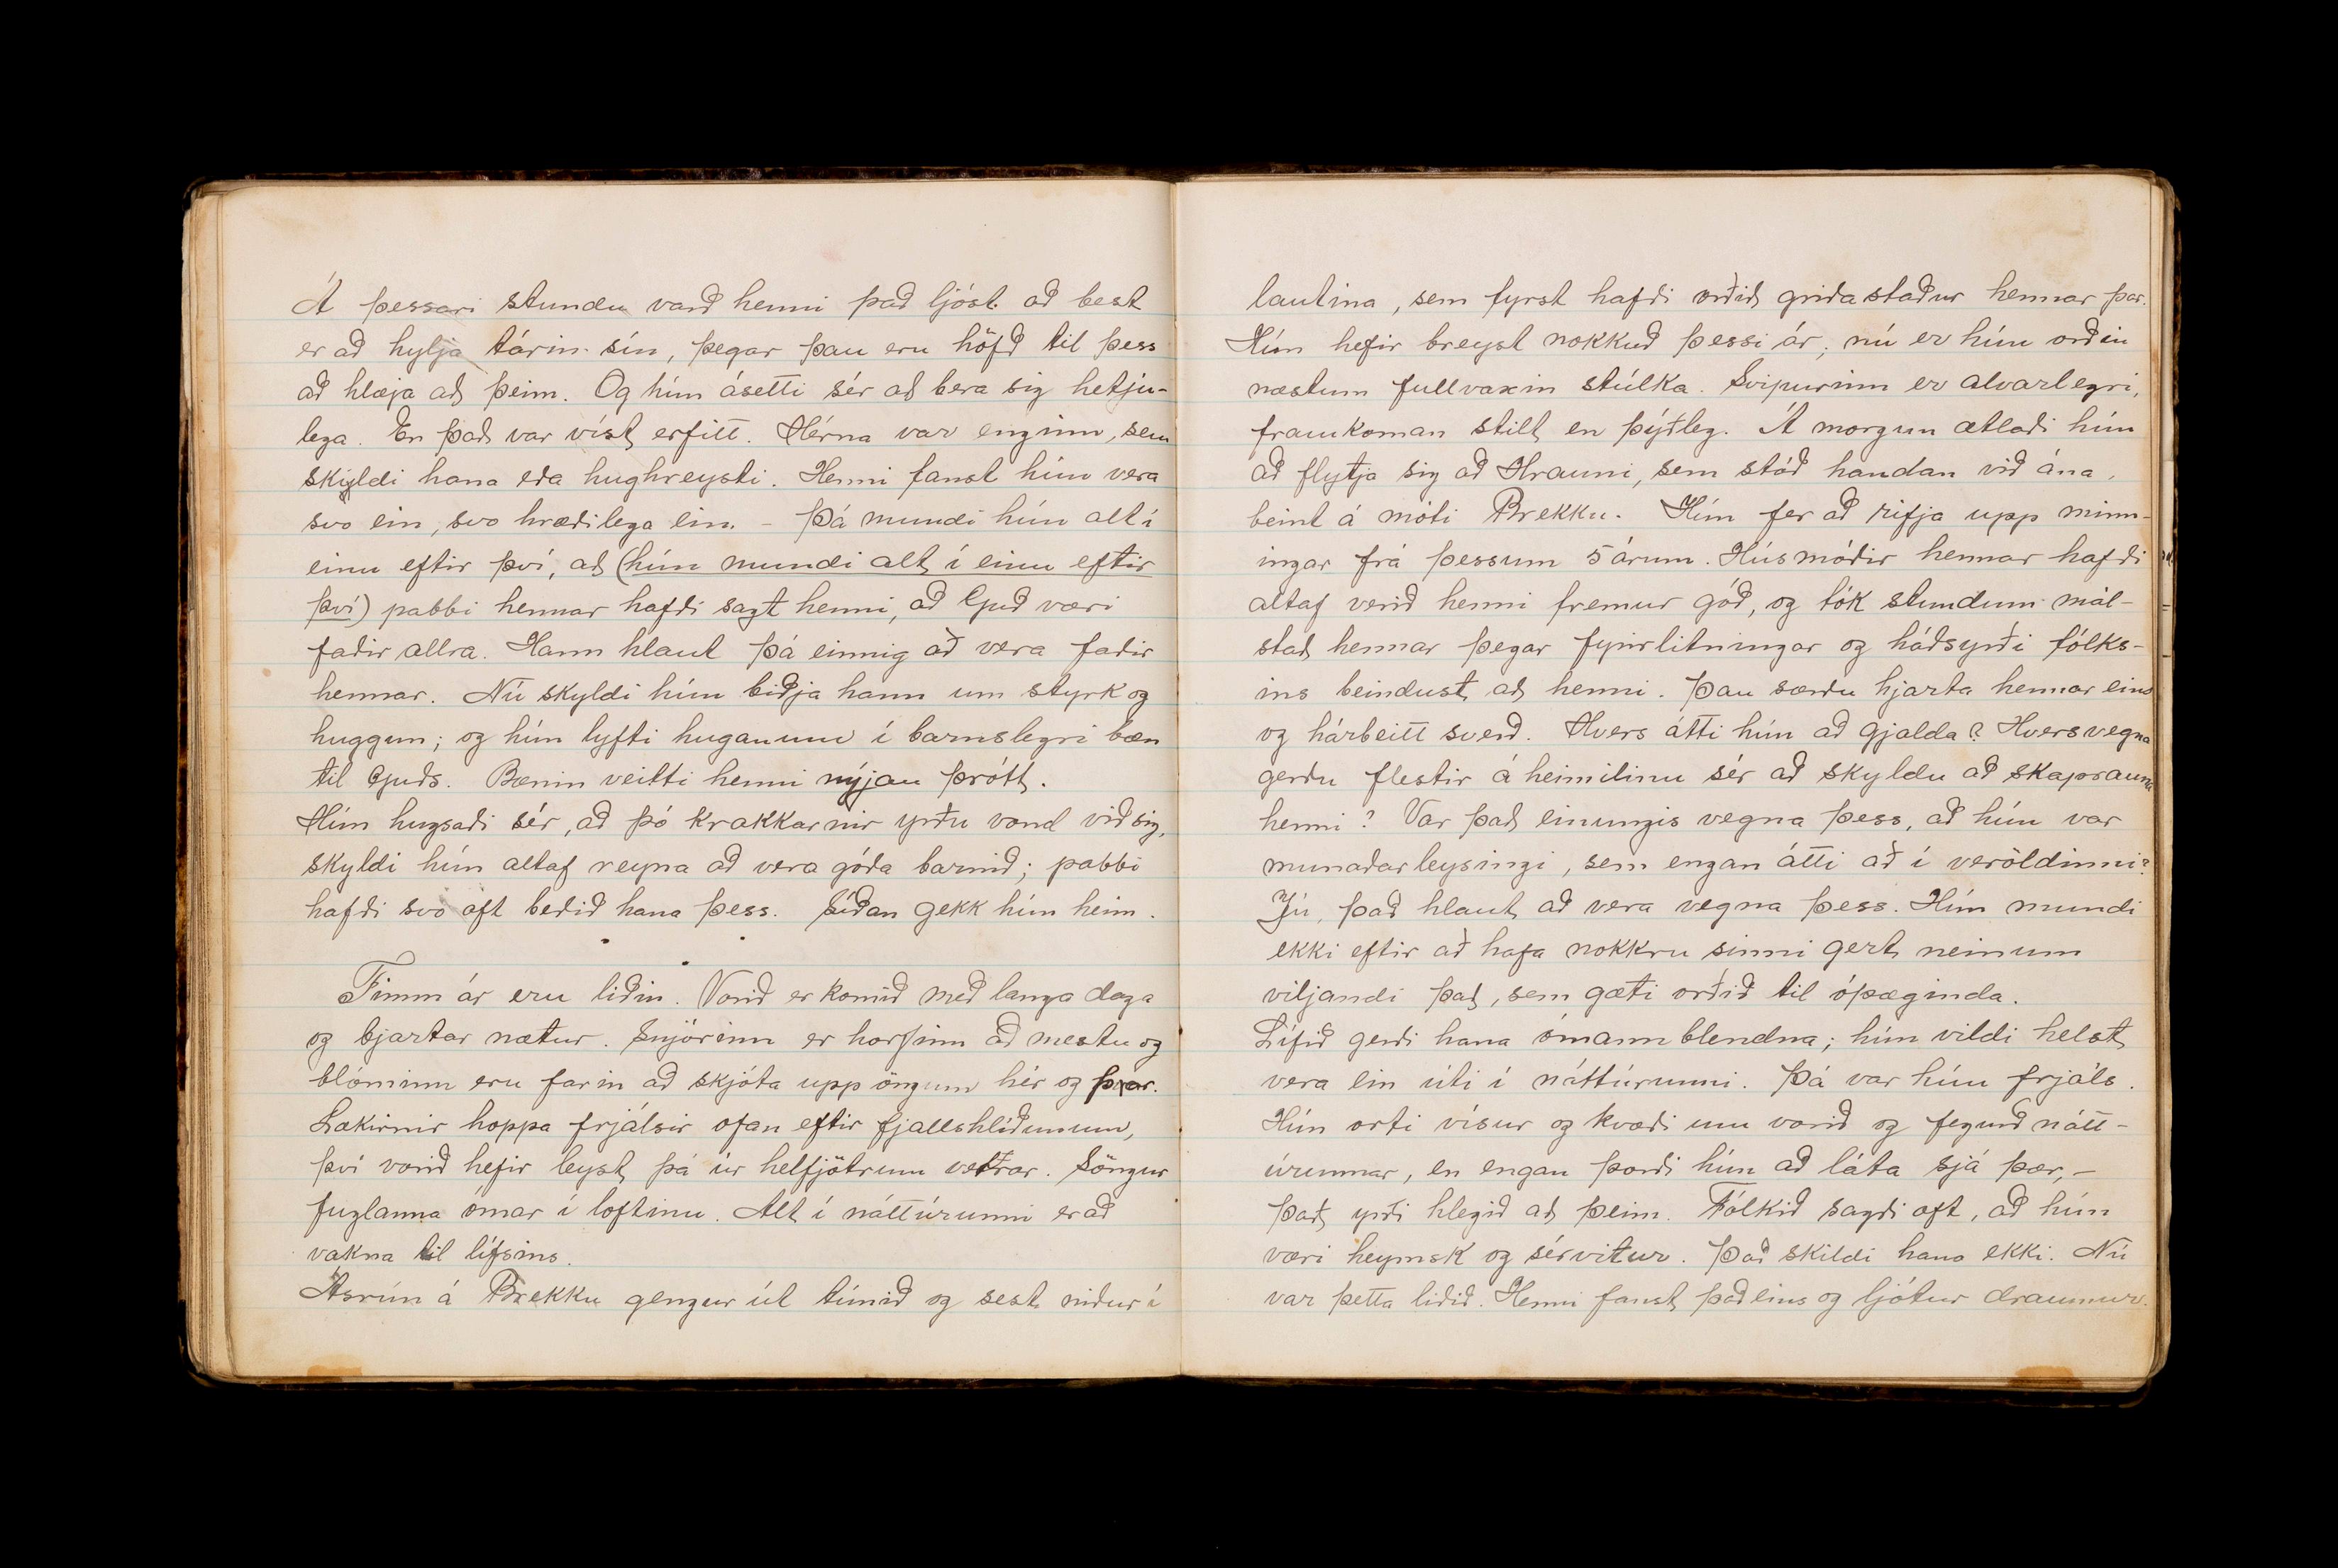 Á þessari stundu varð henni það ljóst að best
er að hylja tárin sín, þegar þau eru höfð til þess
að hlæja að þeim. Og hún ásetti sér að bera sig hetju-
lega. En það var víst erfitt. Hérna var enginn, sem
skyldi hana eða hughreysti. Henni fanst hún vera
svo ein, svo hræðilega ein. - Þá mundi hún alt í
einu eftir því, að (hún mundi alt í einu eftir
því) pabbi hennar hafði sagt henni, að Guð væri
faðir allra. Hann hlaut þá einnig að vera faðir
hennar. Nú skyldi hún biðja hann um styrk og
huggun; og hún lyfti huganum í barnslegri bæn
til Guðs. Bænin veitti henni nýjan þrótt.
Hún hugsaði sér, að þó krakkarnir yrðu vond við sig,
skyldi hún altaf reyna að vera góða barnið; pabbi
hafði svo oft beðið hana þess. Síðan gekk hún heim.
Fimm ár eru liðin. Vorið er komið með langa daga
og bjartar nætur. Snjórinn er horfinn að mestu og
blóminn eru farin að skjóta upp öngum hér og þar.
Lækirnir hoppa frjálsir ofan eftir fjallshlíðunum,
því vorið hefir leyst þá úr helfjötrum vetrar. Söngur
fuglanna ómar í loftinu. Alt í náttúrunni er að
vakna til lífsins.
Ásrún á Brekku gengur út túnið og sest niður í
lautina, sem fyrst hafði orðið griðastaður hennar þar.
Hún hefir breyst nokkuð þessi ár; nú er hún orðin
næstum fullvaxin stúlka. Svipurinn er alvarlegri,
framkoman stilt en þýðleg. Á morgun ætlaði hún
að flytja sig að Hrauni, sem stóð handan við ána,
beint á móti Brekku. Hún fer að rifja upp minn-
ingar frá þessum 5 árum. Húsmóðir hennar hafði
altaf verið henni fremur góð, og tók stundum mál-
stað hennar þegar fyrirlitningar og háðsyrði fólks-
ins beindust að henni. Þau særðu hjarta hennar eins
og hárbeitt sverð. Hvers átti hún að gjalda? Hversvegna
gerðu flestir á heimilinu sér að skyldu að skaprauna
henni? Var það einungis vegna þess, að hún var
munaðarleysingi, sem engan átti að í veröldinni?
Jú, það hlaut að vera vegna þess. Hún mundi
ekki eftir að hafa nokkru sinni gert neinum
viljandi það, sem gæti orðið til óþæginda.
Lífið gerði hana ómannblendna; hún vildi helst
vera ein úti í náttúrunni. Þá var hún frjáls.
Hún orti vísur og kvæði um vorið og fegurð nátt-
úrunnar, en engan þorði hún að láta sjá þær, -
það yrði hlegið að þeim. Fólkið sagði oft, að hún
væri heymsk og sérvitur. Það skildi hana ekki. Nú
var þetta liðið. Henni fanst það eins og ljótur draumur.